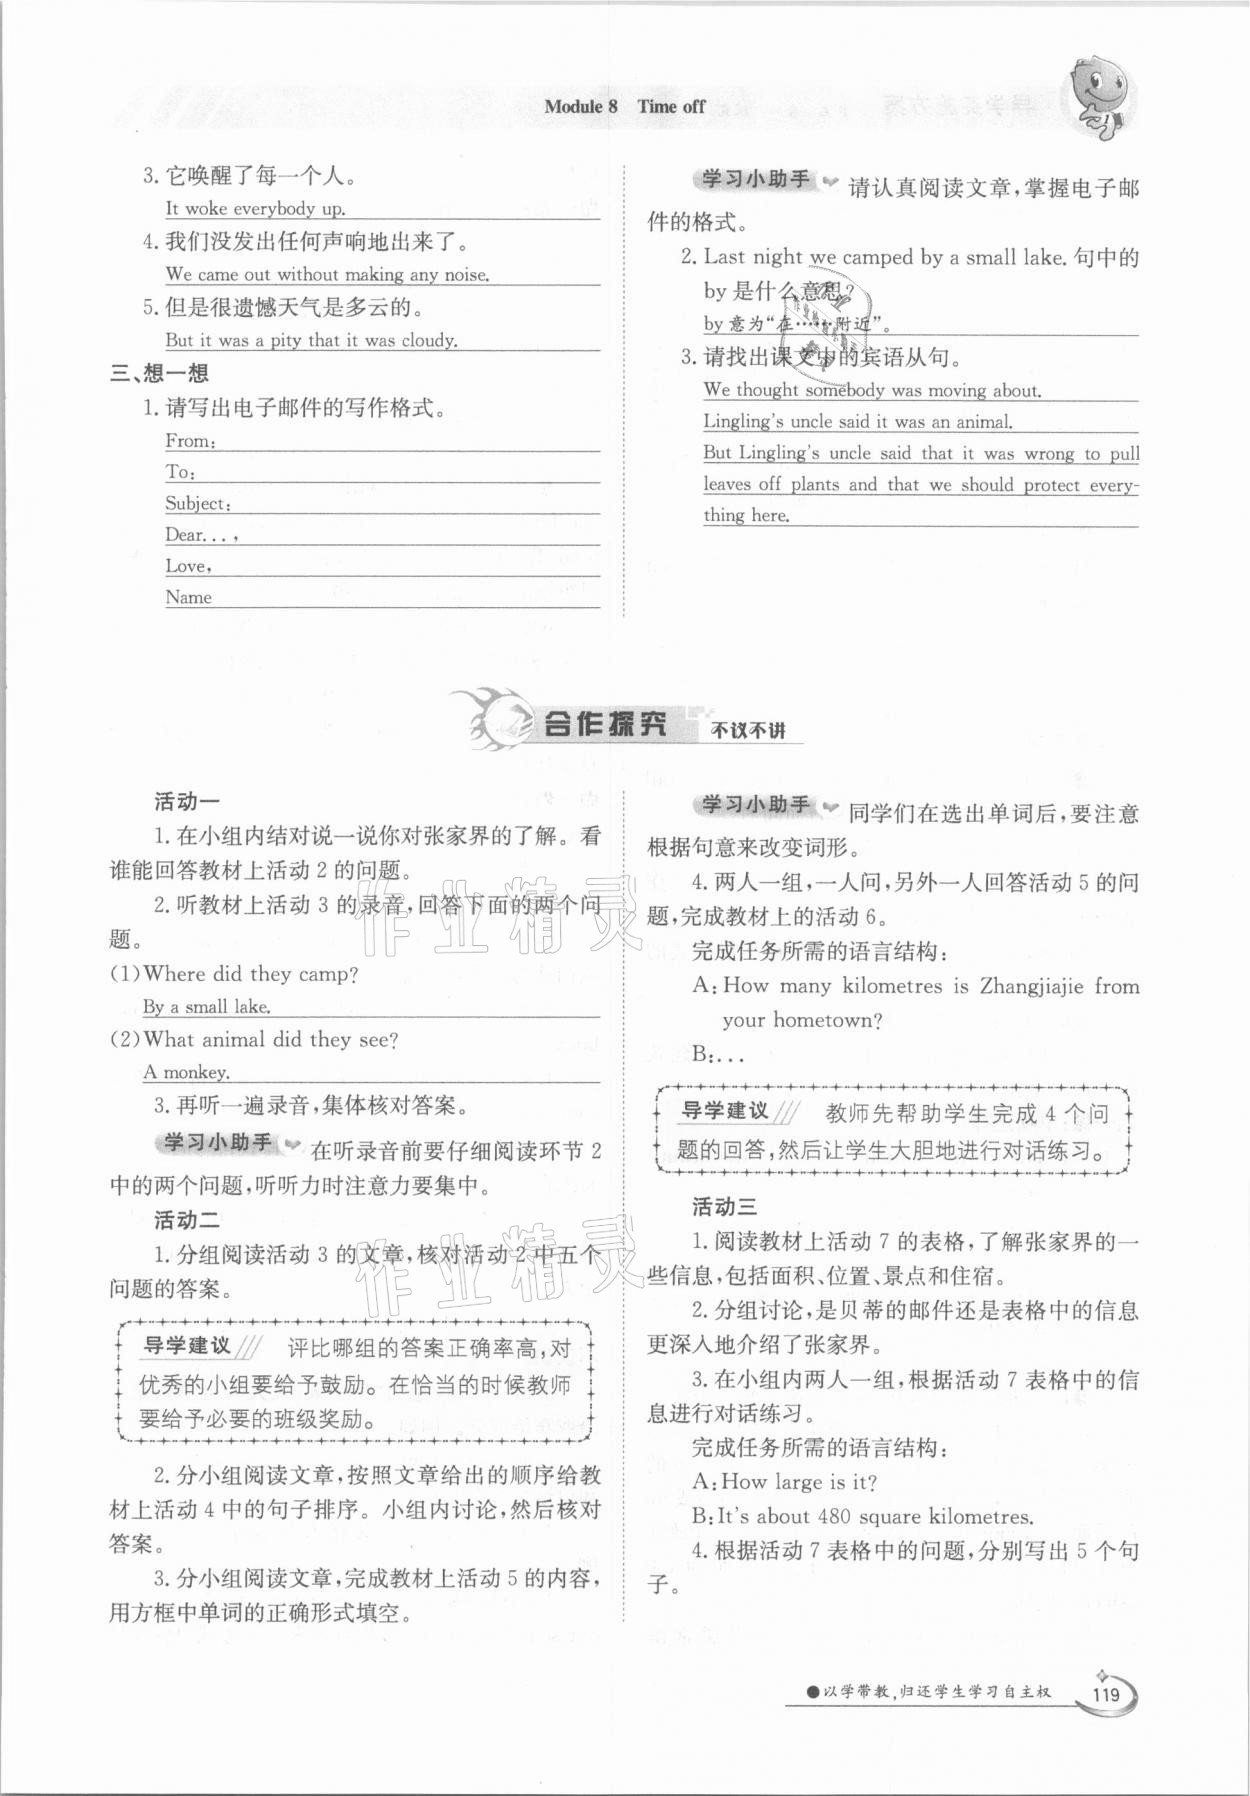 Module 8 Time off
3. 它唤醒了每一个人。
It woke everybody up.
4. 我们没发出任何声响地出来了。
We came out without making any noise.
5. 但是很遗憾天气是多云的。
But it was a pity that it was cloudy.
三、想一想
1. 请写出电子邮件的写作格式。
From:
To:
Subject:
Dear...,
Love,
Name
学习小助手 请认真阅读文章,掌握电子邮
件的格式。
2. Last night we camped by a small lake. 句中的
by 是什么意思?
by 意为“在……附近”。
3. 请找出课文中的宾语从句。
We thought somebody was moving about.
Lingling's uncle said it was an animal.
But Lingling's uncle said that it was wrong to pull
leaves off plants and that we should protect every-
thing here.
合作探究 不议不讲
活动一
1. 在小组内结对说一说你对张家界的了解。看
谁能回答教材上活动 2 的问题。
2. 听教材上活动 3 的录音,回答下面的两个问
题。
(1)Where did they camp?
By a small lake.
(2)What animal did they see?
A monkey.
3. 再听一遍录音,集体核对答案。
学习小助手 在听录音前要仔细阅读环节 2
中的两个问题,听听力时注意力要集中。
活动二
1. 分组阅读活动 3 的文章,核对活动 2 中五个
问题的答案。
导学建议 评比哪组的答案正确率高,对
优秀的小组要给予鼓励。在恰当的时候教师
要给予必要的班级奖励。
2. 分小组阅读文章,按照文章给出的顺序给教
材上活动 4 中的句子排序。小组内讨论,然后核对
答案。
3. 分小组阅读文章,完成教材上活动 5 的内容,
用方框中单词的正确形式填空。
学习小助手 同学们在选出单词后,要注意
根据句意来改变词形。
4. 两人一组,一人问,另外一人回答活动 5 的问
题,完成教材上的活动 6。
完成任务所需的语言结构:
A: How many kilometres is Zhangjiajie from
your hometown?
B:...
导学建议 教师先帮助学生完成 4 个问
题的回答,然后让学生大胆地进行对话练习。
活动三
1. 阅读教材上活动 7 的表格,了解张家界的一
些信息,包括面积、位置、景点和住宿。
2. 分组讨论,是贝蒂的邮件还是表格中的信息
更深入地介绍了张家界。
3. 在小组内两人一组,根据活动 7 表格中的信
息进行对话练习。
完成任务所需的语言结构:
A: How large is it?
B: It's about 480 square kilometres.
4. 根据活动 7 表格中的问题,分别写出 5 个句
子。
作业精灵
作业精灵
●以学带教,归还学生学习自主权
119